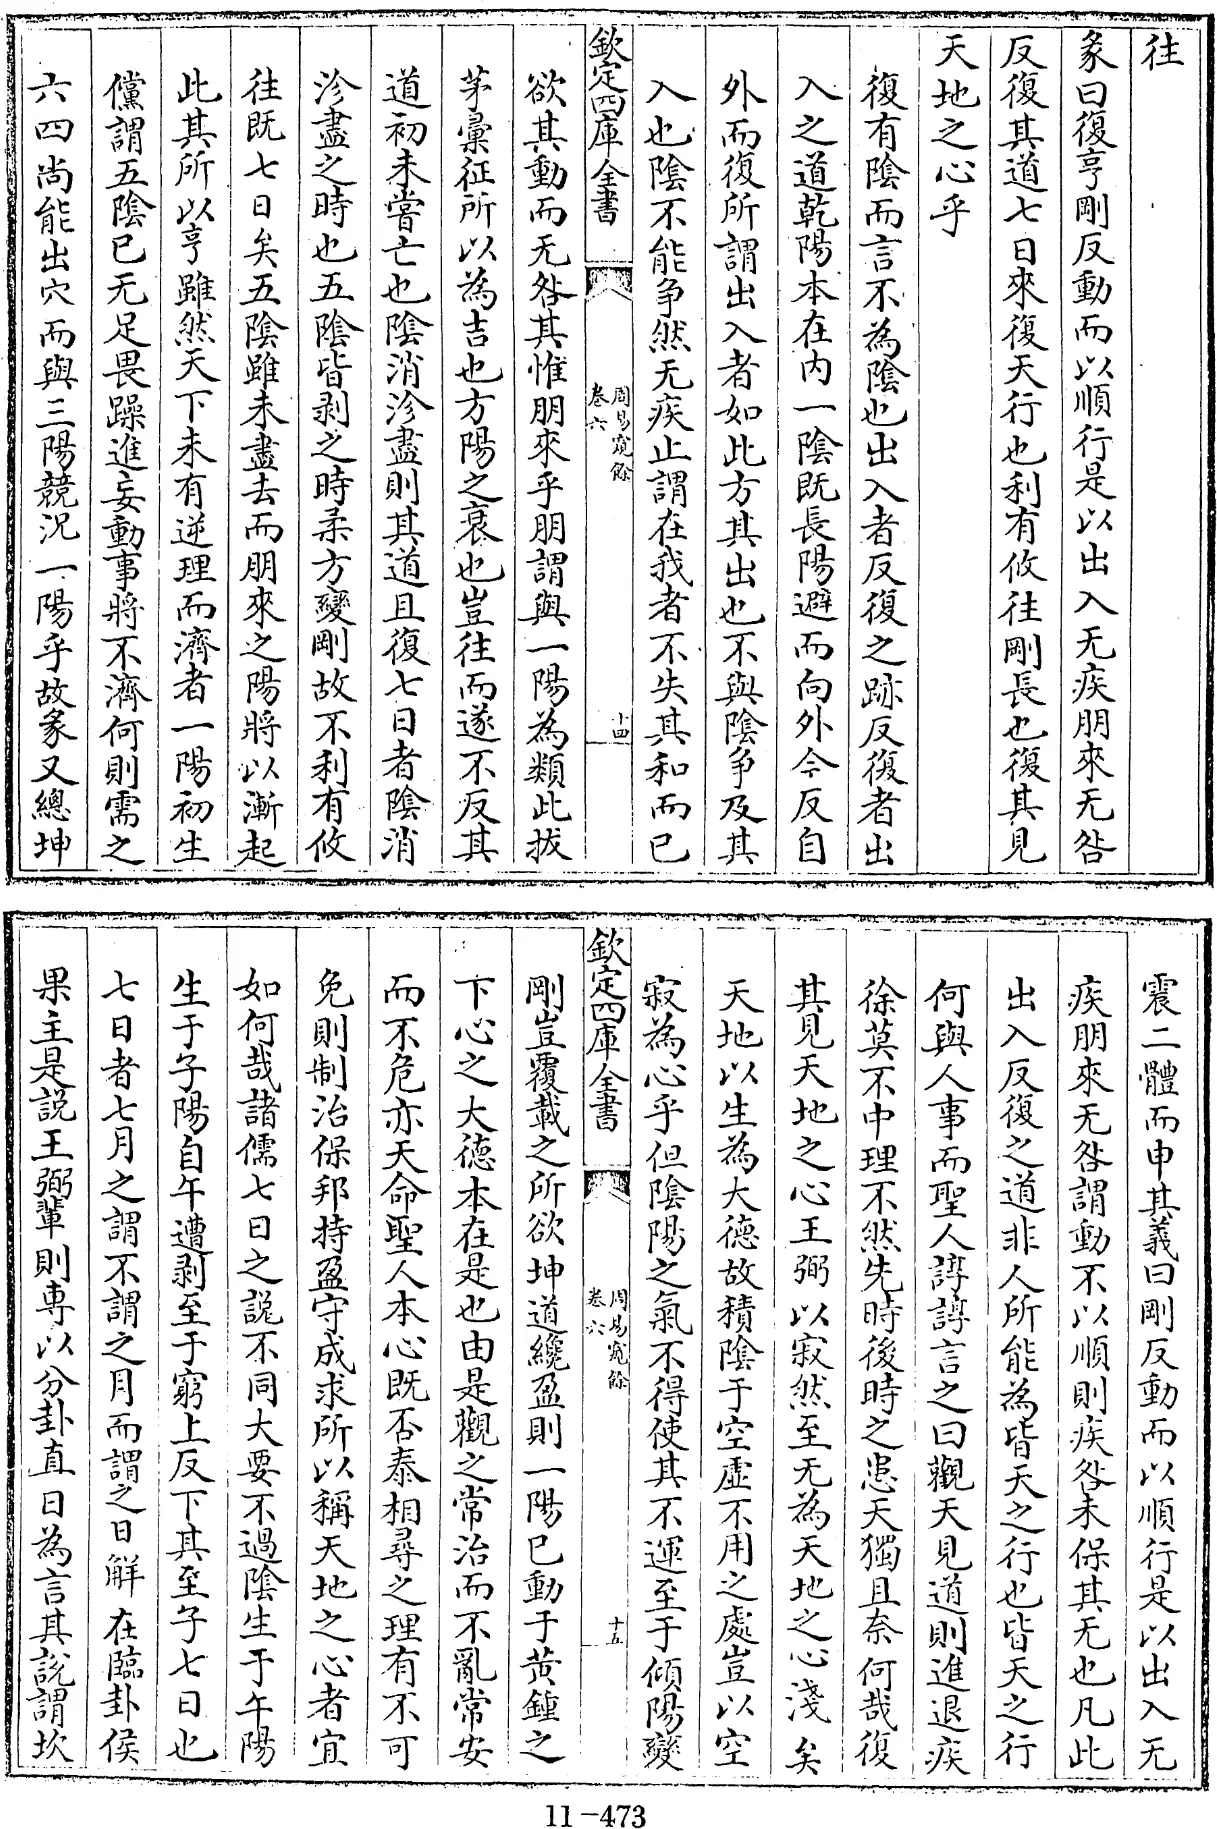 往
彖曰復亨剛反動而以順行是以出入无疾朋來无咎
反復其道七日來復天行也利有攸往剛長也復其見
天地之心乎
復有陰而言不為陰也出入者反復之跡反復者出
入之道乾陽本在内一陰既長陽避而向外今反自
外而復所謂出入者如此方其出也不與陰争及其
入也陰不能争然无疾止謂在我者不失其和而已
欽定四庫全書
周易窺餘
卷六
十四
欲其動而无咎其惟朋來乎朋謂與一陽為類此拔
茅彚征所以為吉也方陽之衰也豈往而遂不反其
道初未嘗亡也陰消沴盡則其道且復七日者陰消
沴盡之時也五陰皆剥之時柔方變剛故不利有攸
往既七日矣五陰雖未盡去而朋來之陽將以漸起
此其所以亨雖然天下未有逆理而濟者一陽初生
儻謂五陰已无足畏躁進妄動事將不濟何則需之
六四尚能出穴而與三陽競況一陽乎故彖又總坤
震二體而申其義曰剛反動而以順行是以出入无
疾朋來无咎謂動不以順則疾咎未保其无也凡此
出入反復之道非人所能為皆天之行也皆天之行
何與人事而聖人諄諄言之曰觀天見道則進退疾
徐莫不中理不然先時後時之患天獨且奈何哉復
其見天地之心王弼以寂然至无為天地之心淺矣
天地以生為大德故積陰于空虚不用之處豈以空
寂為心乎但陰陽之氣不得使其不運至于傾陽變
欽定四庫全書
周易窺餘
卷六
十五
剛豈覆載之所欲坤道纔盈則一陽已動于黄鍾之
下心之大德本在是也由是觀之常治而不亂常安
而不危亦天命聖人本心既否泰相尋之理有不可
免則制治保邦持盈守成求所以稱天地之心者宜
如何哉諸儒七日之説不同大要不過陰生于午陽
生于子陽自午遭剥至于窮上反下其至子七日也
七日者七月之謂不謂之月而謂之日解在臨卦侯
果主是説王弼輩則專以分卦直日為言其説謂坎
11-473